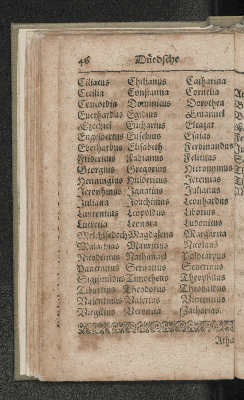 46 Düedsche
Ciliacus Chilianus Catharina
Cecilia Constantia Cornelia
Concordia Dominicus Dorothea
Euerhardus Egidius Emanuel
Ezechiel Eucharius Eleazar
Engelbertus Eusebius Esaias
Eberhardus Elisabeth Ferdinandus
Fridericus Fabianus Felicitas
Georgius Gregorius Hieronymus
Henningius Huldericus Jeremias
Jeronymus Ignatius Julianus
Juliana Joachimus Leonhardus
Laurentius Leopoldus Liborius
Lucretia Leonora Ludouicus
Melchisedech Magdalena Margarita
Malachias Mauritius Nicolaus
Nicodemus Nathanael Polycarpus
Pancratius Seruatius Seuerinus
Sigismundus Timotheus Theophilus
Tiburtius Theodorus Theobaldus
Valentinus Valerius Vincentius
Virgilius Veronica Zacharias.